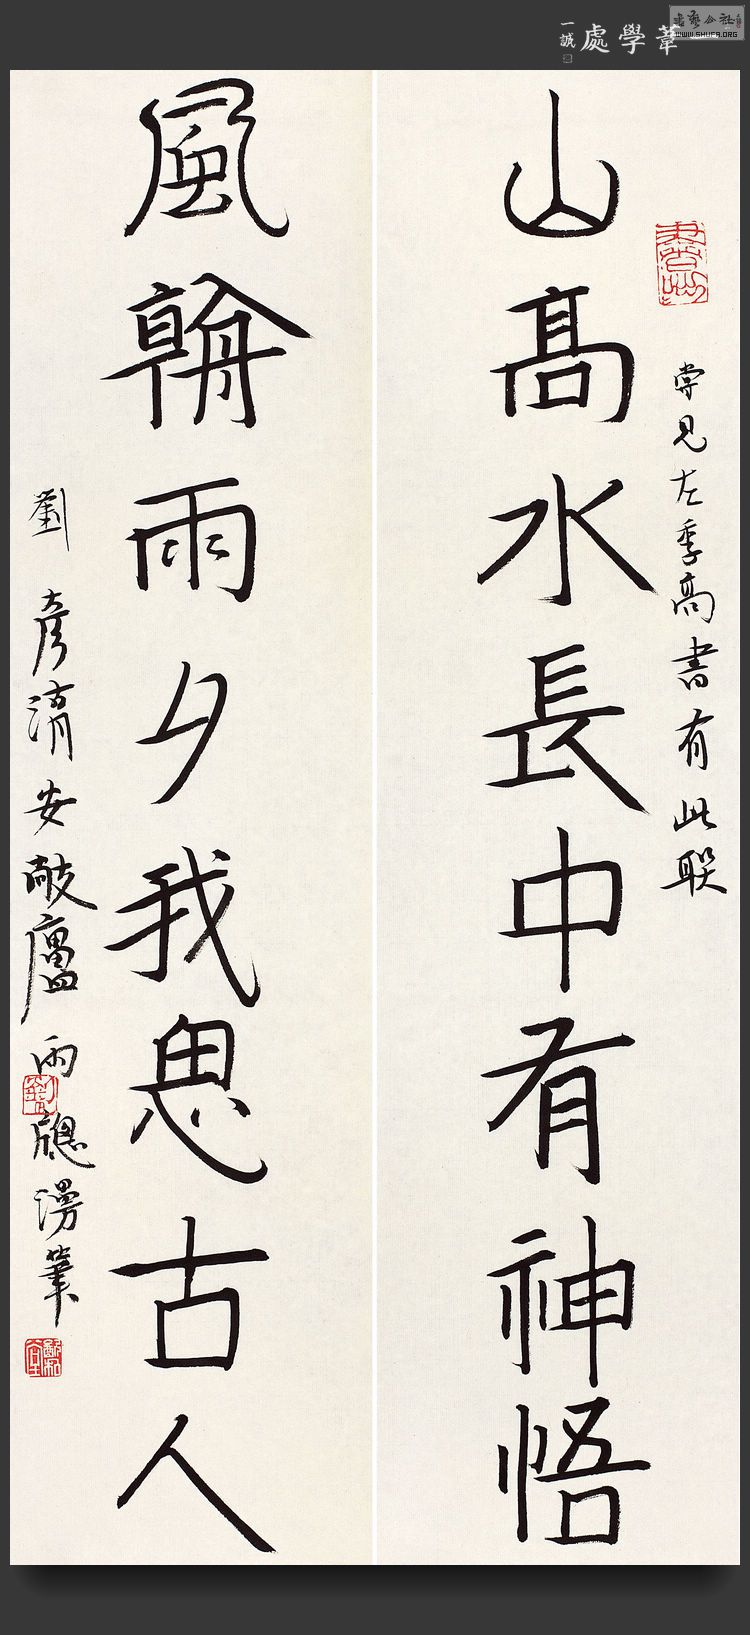 書藝公社
WWW.SHUFA.ORG
一葦學處
一誠
嘗見左季高書有此聯
山高水長中有神悟
風朝雨夕我思古人
劉彥湖安廬雨牕漫筆